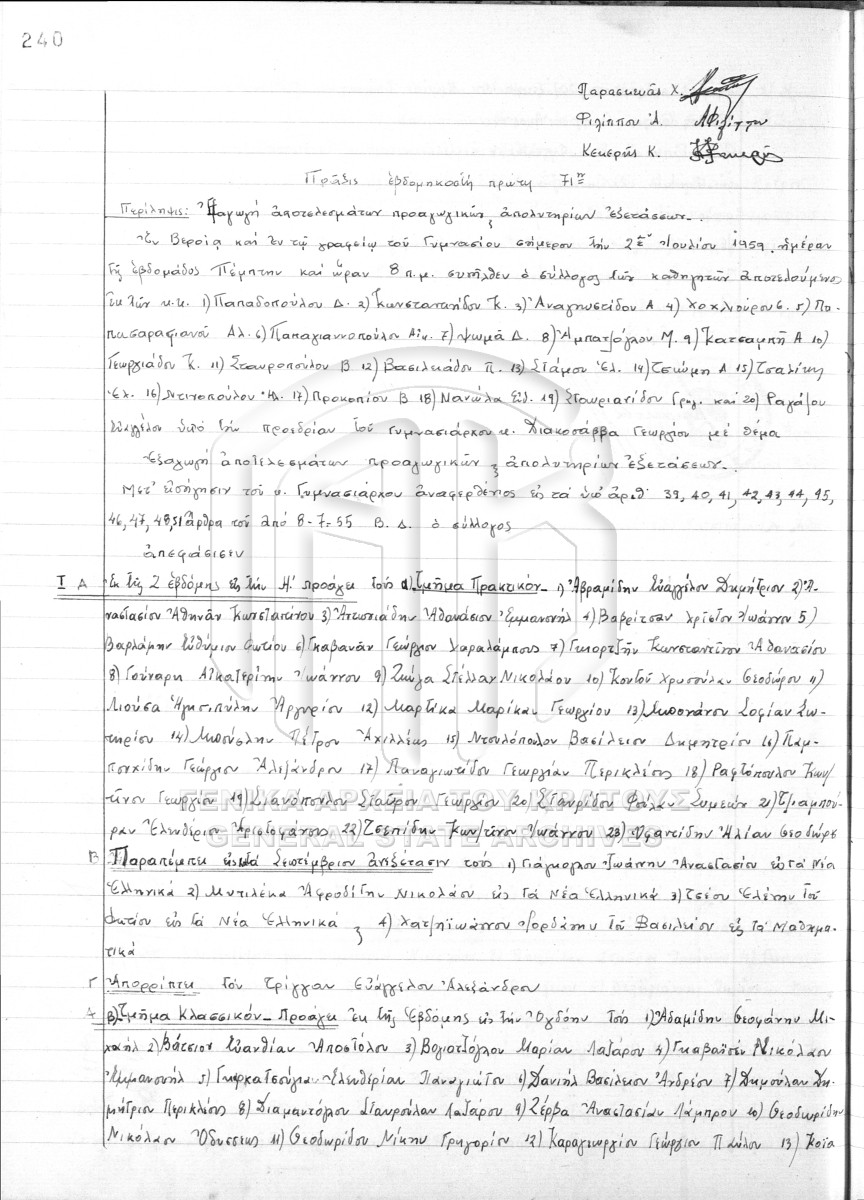 240
Παρασκευᾶς Χ.
Φιλίππου Ἀ. ΑΦιλίππου
Κεκερῆς Κ.
Πρᾶξις ἑβδομηκοστή πρώτη 71η
Περίληψις: ἀποτελεσμάτων προαγωγικῶν & ἀπολυτηρίων ἐξετάσεων.
Ἐν Βεροίᾳ καί ἐν τῷ γραφείῳ τοῦ Γυμνασίου σήμερον τήν 2αν Ἰουλίου 1959 ἡμέραν
τῆς ἑβδομάδος Πέμπτην καί ὥραν 8 π.μ. συνῆλθεν ὁ σύλλογος τῶν καθηγητῶν ἀποτελούμενος
ἐκ τῶν κ.κ. 1) Παπαδοπούλου Δ. 2) Κωνσταντινίδου Κ. 3) Ἀναγνωστίδου Α 4) Χοχλιούρου 5) Πα-
πασαραφιανοῦ Αλ. 6) Παπαγιαννοπούλου Αἰκ. 7) Ψωμᾶ Δ. 8) Ἀμπατζόγλου Μ. 9) Κατσαμπῆ Α 10)
Γεωργιάδου Κ. 11) Σταυροπούλου Β 12) Βασιλειάδου Π. 13) Στάμου Ἐλ. 14) Τσιώμη Α 15) Τσαλίκη
Ἐλ. 16) Ντινοπούλου Ἠλ. 17) Προκοπίου Β 18) Νανώλα Εὐδ. 19) Σταυριανίδου Γρηγ. καί 20) Ραγάζου
Εὐαγγέλου ὑπό τήν προεδρίαν τοῦ γυμνασιάρχου κ. Διακοσάββα Γεωργίου μέ θέμα
Ἐξαγωγή ἀποτελεσμάτων προαγωγικῶν & ἀπολυτηρίων ἐξετάσεων.
Μετ' εἰσήγησιν τοῦ κ. Γυμνασιάρχου ἀναφερθέντος εἰς τά ὑπ' ἀριθ 39, 40, 41, 42, 43, 44, 45,
46, 47, 48, 51 ἄρθρα τοῦ ἀπό 8-7-55 Β. Δ. ὁ σύλλογος
ἀπεφάσισεν
I A Ἐκ τῆς Ζ ἑβδόμης εἰς τήν Η' προάγει τούς α) Τμῆμα Πρακτικόν_ 1) Ἀβραμίδην Εὐαγγέλου Δημήτριον 2) Ἀ-
ναστασίου Ἀθηνᾶν Κωνσταντίνου 3) Ἀντωνιάδην Ἀθανάσιον Ἐμμανουήλ 4) Βαβρίτσαν Χρῖστον Ἰωάννου 5)
Βαρλάμην Εὐθύμιον Φωτίου 6) Γκαβανᾶν Γεώργιον Χαραλάμπους 7) Γκιορτζῆν Κωνσταντῖνον Ἀθανασίου
8) Γούναρη Αἰκατερίνην Ἰωάννου 9) Στέλλαν Νικολάου 10) Κοντοῦ Χρυσούλαν Θεοδώρου 11)
Λιούσα Ἁγησιπύλην Ἀργυρίου 12) Μαρτίκα Μαρίκαν Γεωργίου 13) Μποσνάνου Σοφίαν Σω-
τηρίου 14) Μπούσλην Πέτρον Ἀχιλλέως 15) Ντουλόπουλον Βασίλειον Δημητρίου 16) Παμ-
πουχίδην Γεώργιον Ἀλεξάνδρου 17) Παναγιωτίδου Γεωργίαν Περικλέους 18) Ραφτόπουλον Κων/
τῖνον Γεωργίου 19) Σιανόπουλον Σταῦρον Γεωργίου 20) Σταυρίδην Φώλαν Συμεών 21) Τζιαμπού-
ραν Ἐλευθέριον Ἀριστοφάνους 22) Τσεπίδην Κων/τῖνον Ἰωάννου 23) Ὑφαντίδην Ἠλίαν Θεοδώρου
Β Παραπέμπει εἰς τόν Σεπτέμβριον ἀνεξέτασιν τούς 1) Γιάγκογλου Ἰωάννην Ἀναστασίου εἰς τά Νέα
Ἑλληνικά 2) Μυτιλέκα Ἀφροδίτην Νικολάου εἰς τά Νέα Ἑλληνικά 3) Τσέου Ἑλένην τοῦ
Φωτίου εἰς τά Νέα Ἑλληνικά & 4) Χατζηϊωάννου Ἰορδάνην τοῦ Βασιλείου εἰς τά Μαθημα-
τικά
Γ Ἀπορρίπτει τόν Τρίγγαν Εὐάγγελον Ἀλεξάνδρου
Α β) Τμῆμα Κλασσικόν_ Προάγει ἐκ τῆς Ἑβδόμης εἰς τήν Ὀγδόην τούς 1) Ἀδαμίδην Θεοφάνην Μι-
χαήλ 2) Βάτσιου Εὐανθίαν Ἀποστόλου 3) Βογιατζόγλου Μαρίαν Λαζάρου 4) Γκαβαϊσέν Νικόλαον
Ἐμμανουήλ 5) Γκιρκατσούγια Ἐλευθερίαν Παναγιώτου 6) Δανιήλ Βασίλειον Ἀνδρέου 7) Δημούλαν Δη-
μήτριον Περικλέους 8) Διαμαντόγλου Σταυρούλαν Λαζάρου 9) Ζέρβα Ἀναστασίαν Λάμπρου 10) Θεοδωρίδην
Νικόλαον Ὀδυσσέως 11) Θεοδωρίδου Νίκην Γρηγορίου 12) Καραγεωργίου Γεώργιον Παύλου 13) Κοΐα
ΓΕΝΙΚΑ ΑΡΧΕΙΑ ΤΟΥ ΚΡΑΤΟΥΣ
GENERAL STATE ARCHIVES